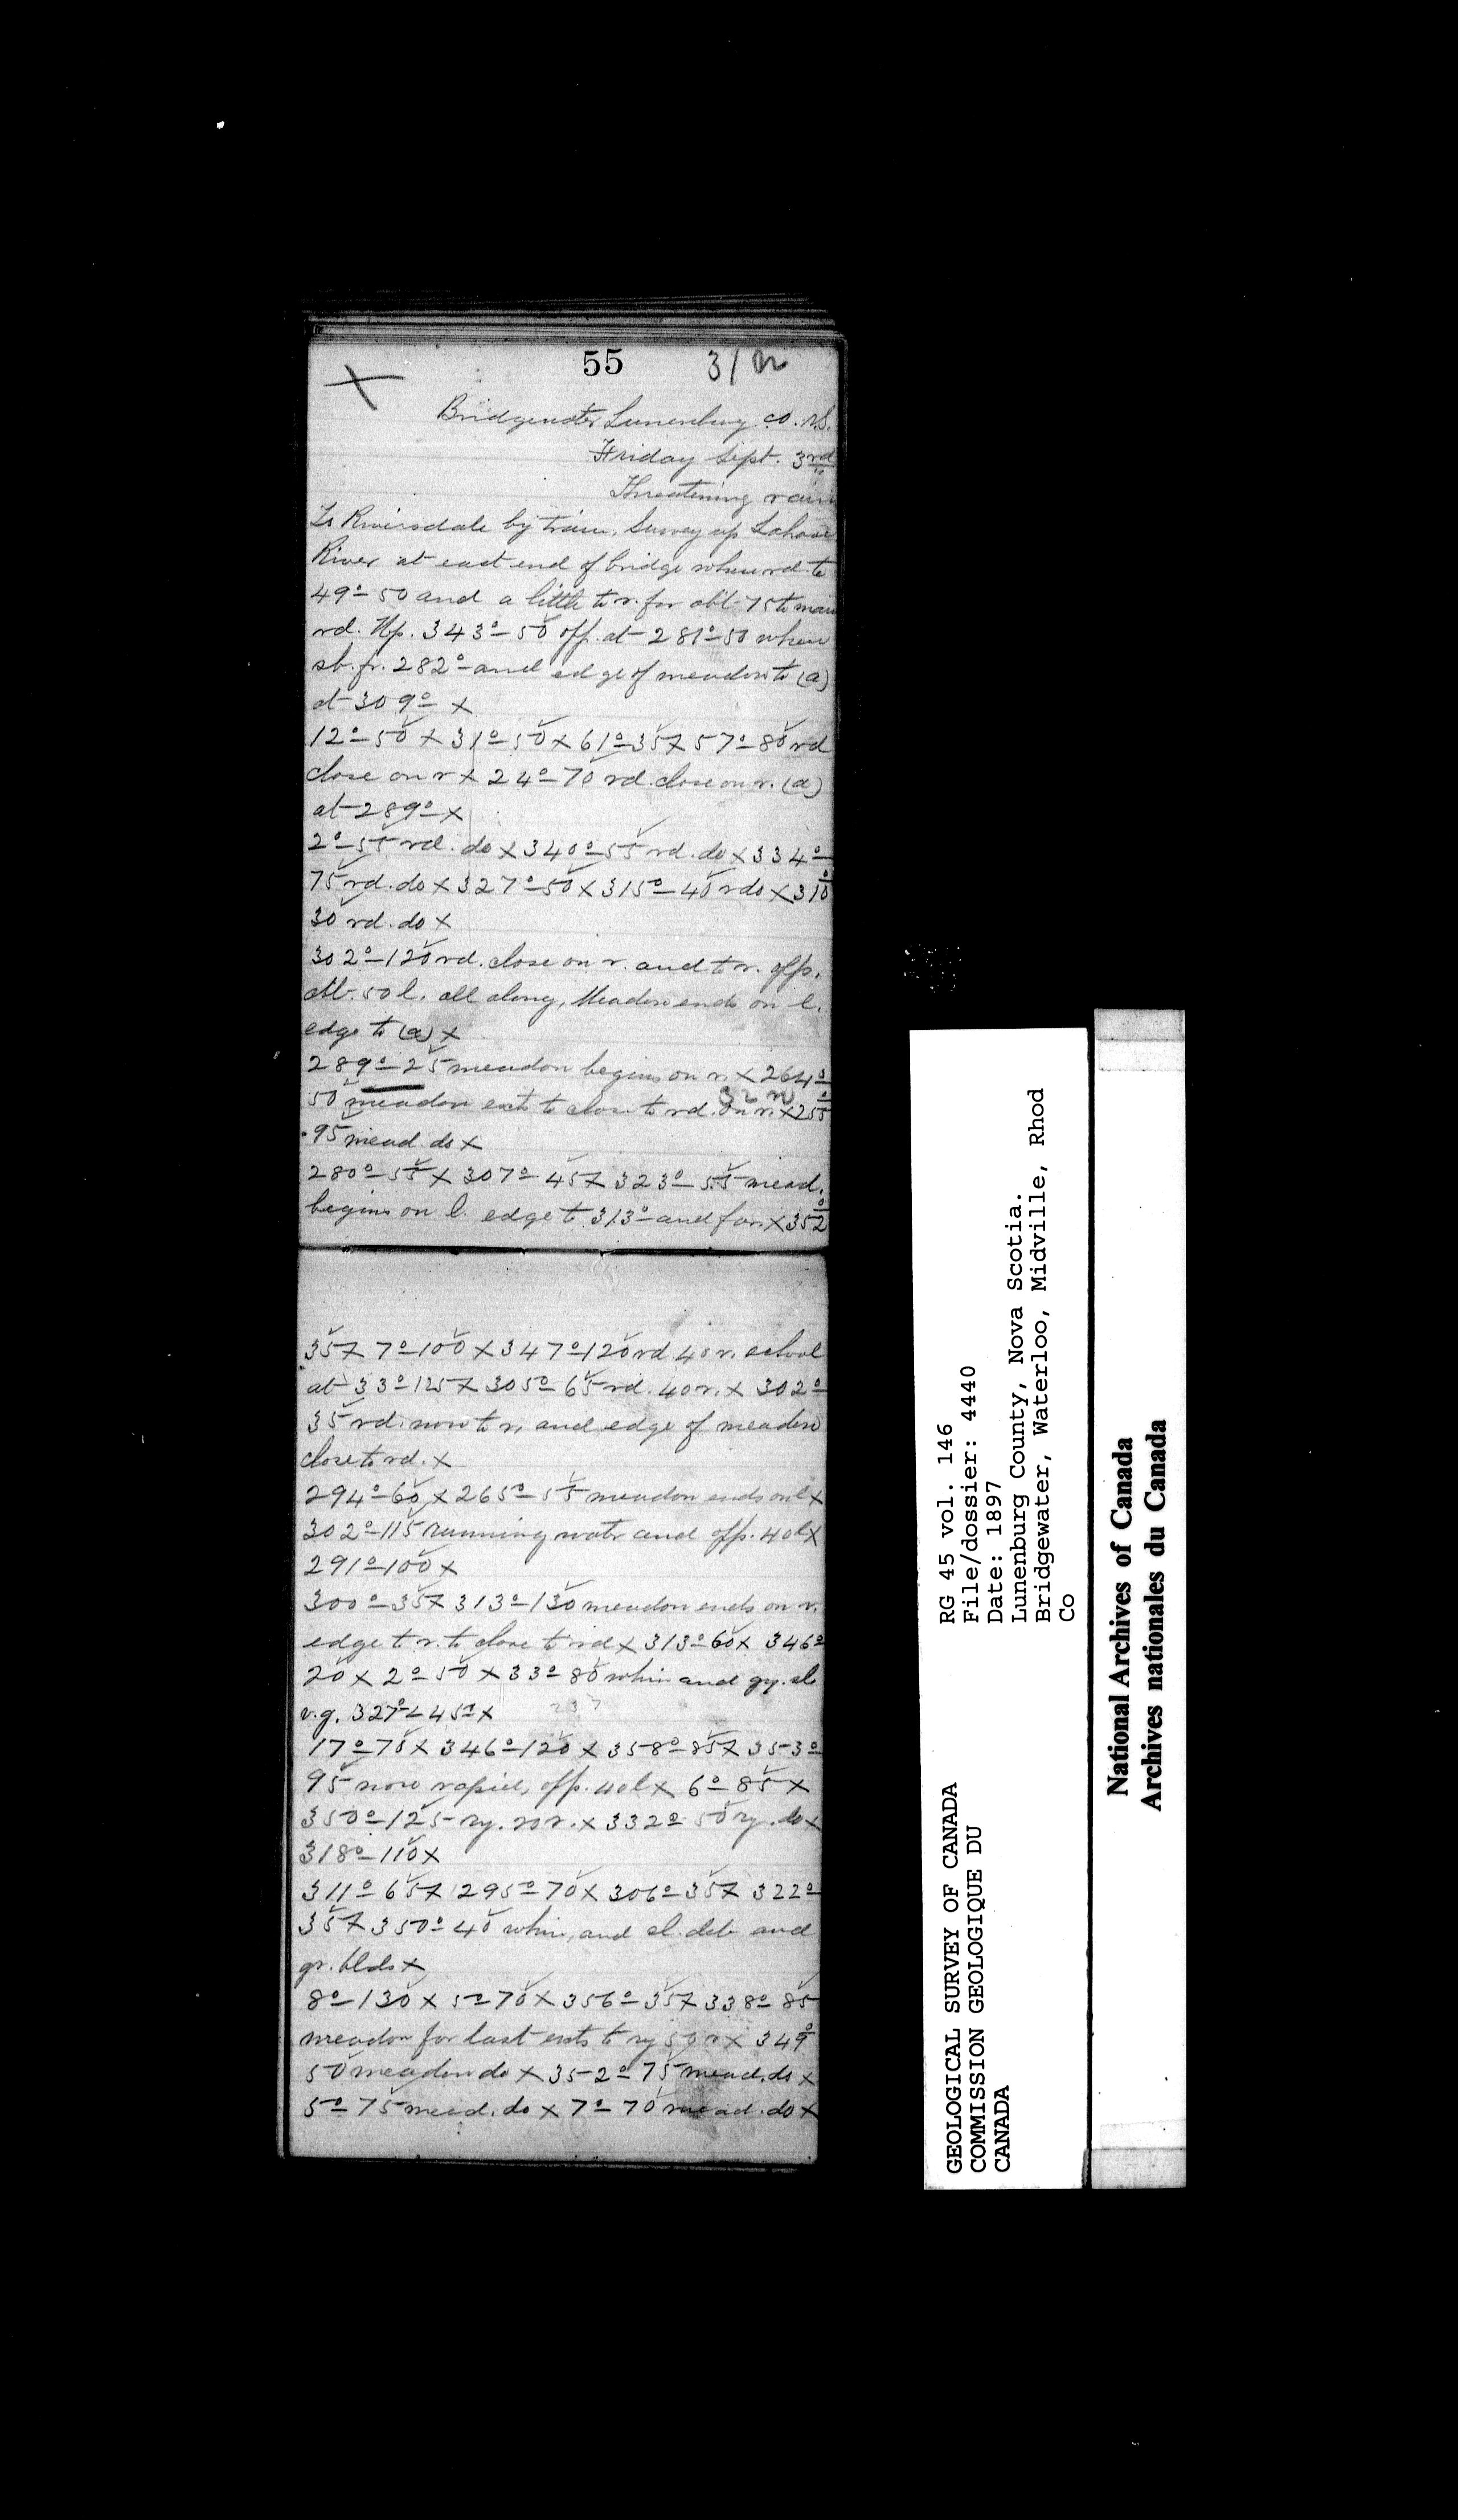 55 31 N
Bridgewater Lunenburg Co. N.S.
Friday Sept. 3rd
Threatening rain
To Riversdale by train, Survey up Lahave
River at east end of bridge when rd. to
49°-50 and a little to r. for abt. 75 to main
rd. Up. 343°-50 off. at 281°-50 when
sb. fr. 282° and edge of meadow to (a)
at 309° x
12°-50 x 31°-50 x 61°-35 x 57°-80 rd
close on r x 24°-70 rd. close on r. (a)
at 289° x
2°-55 rd. do x 340°-55 rd. do x 334°
75 rd. do x 327°-50 x 315°-40 rdo x 310°
30 rd. do x
302°-120 rd. close on r. and to r. opp.
abt. 50 l. all along, Meadow ends on l.
edge to (a) x
289°-25 meadow begins on r. x 264°
32 N
50 meadow exts to close to rd. on r. x 255°
95 mead. do x
280°-55 x 307°-45 x 323°-55 mead.
begins on l. edge to 313° and far. x 352°
35 x 7°-100 x 347°-120 rd. 40 r. school
at 33°-125 x 305°-65 rd. 40 r. x 302°
35 rd. now to r. and edge of meadow
close to rd. x
294°-60 x 265°-55 meadow ends on l x
302°-115 running watr and opp. 40 l x
291°-100 x
300°-35 x 313°-130 meadow ends on r.
edge to r. to close to rd x 313°-60 x 346°
20 x 2°-50 x 33°-80 whin and gy. sl.
v.g. 327°∠45° x
237
17°-70 x 346°-120 x 358°-85 x 353°
95 now rapid, opp. 40 l x 6°-85 x
350°-125 ry. 20 r. x 332°-50 ry. do x
318°-110 x
311°-65 x 295°-70 x 306°-35 x 322°
35 x 350°-40 whin, and sl. deb. and
gr. blds x
8°-130 x 5°-70 x 356°-35 x 338°-85
meadow for last exts to ry 50 r x 349°
50 meadow do x 352°-75 mead. do x
5°-75 mead. do x 7°-70 mead. do x
GEOLOGICAL SURVEY OF CANADA
COMMISSION GEOLOGIQUE DU
CANADA
RG 45 vol. 146
File/dossier: 4440
Date: 1897
Lunenburg County, Nova Scotia.
Bridgewater, Waterloo, Midville, Rhod
Co
National Archives of Canada
Archives nationales du Canada